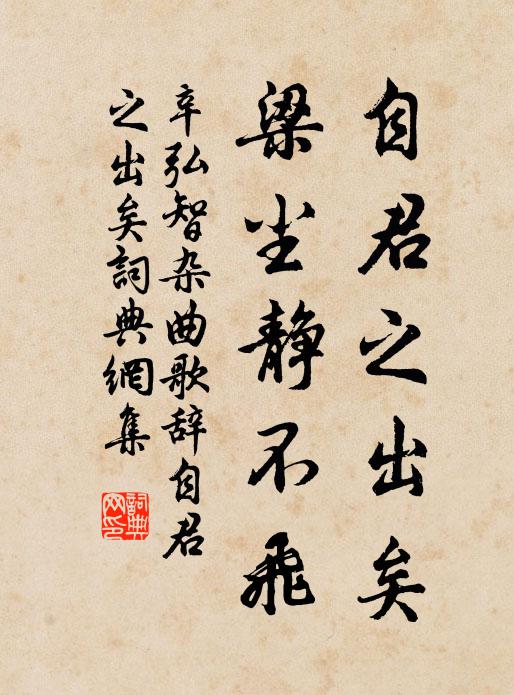 自君之出矣
梁尘静不飛
辛弘智杂曲歌辞自君
之出矣詞典網集
詞典
网印